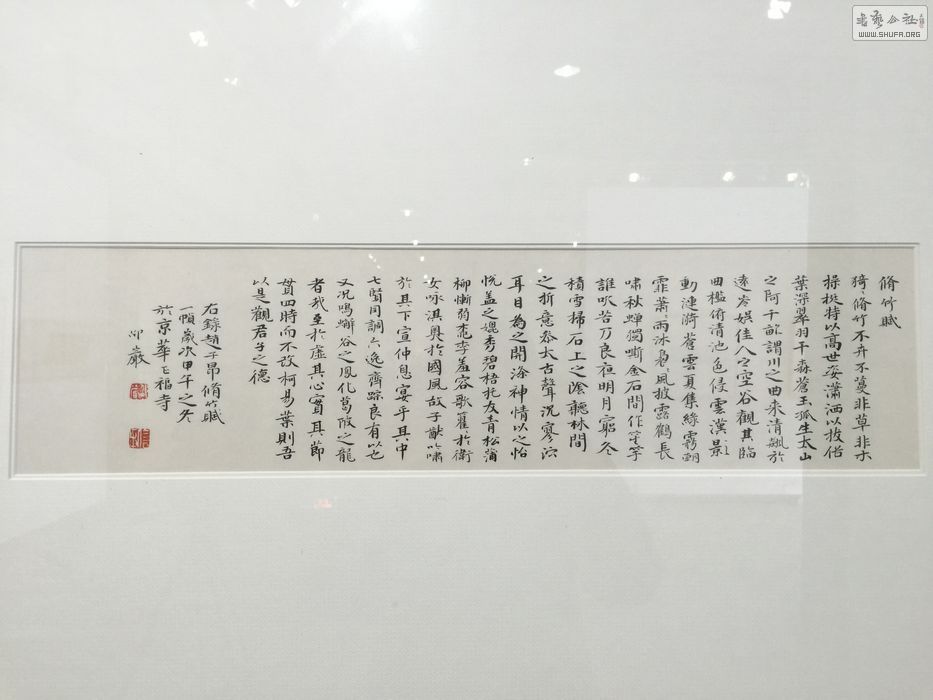 脩竹賦
猗猗脩竹不卉不蔓非草非木
操挺特以高世姿瀟洒以拔俗
葉深翠羽干森蒼玉孤生太山
之阿千畝謂川之曲来清飆於
遠岑娛佳人之空谷觀其臨
曲檻俯清池色侵雲漢影
動漣漪蒼雲夏集綠霧朝
霏蕭蕭雨沐裊裊風披露鶴長
嘯秋蟬獨嘶金石間作笙竽
誰吹若乃良夜明月窮冬
積雪掃石上之陰聽林間
之折意參太古聲沉寥泬
耳目為之開滌神情以之怡
悅蓋之媲秀碧梧托友青松蒲
柳慚弱桃李羞容歌雚於衛
女咏淇奧於國風故子猷吟嘯
於其下宣仲息宴乎其中
七賢同調六逸齊踪良有以也
又况鳴嶰谷之鳳化葛陂之龍
者哉至於虛其心實其節
貫四時而不改柯易葉則吾
以是觀君子之德
右錄趙子昂脩竹賦
一幀歲次甲午之冬
於京華
嚴
WWW.SHUFA.ORG